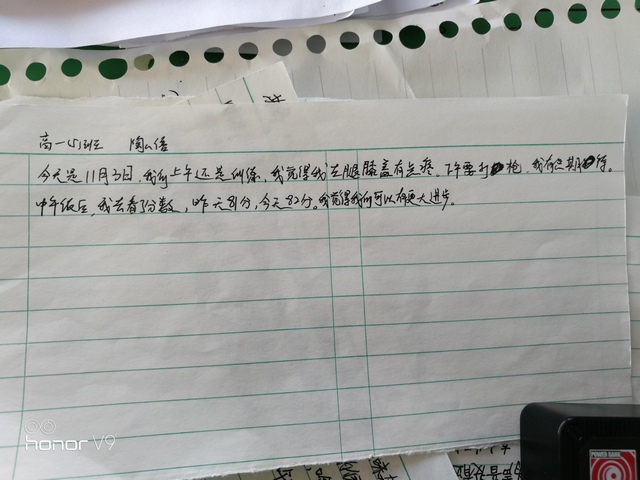 高一(5)班 陶
今天是11月3日，我们上午还是训练，我觉得我左腿膝盖有点疼。下午要打枪，我有些期待。
中午饭后，我去看了分数，昨天81分，今天82分。我觉得我们可以有更大进步。
honor V9
POWER BANK